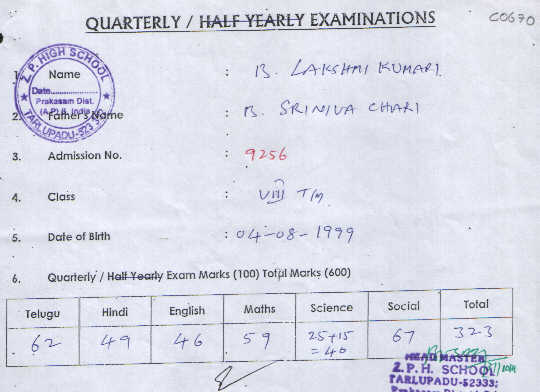 QUARTERLY / HALF YEARLY EXAMINATIONS
C0670
Z. P. HIGH SCHOOL
Date
Prakasam Dist.
(A.P) S. India
TARLUPADU-523 332
1. Name : B. LAKSHMI KUMARI.
2. Father's Name : B. SRINIVA CHARI
3. Admission No. : 9256
4. Class : VIII T/M
5. Date of Birth : 04-08-1999
6. Quarterly / Half Yearly Exam Marks (100) Total Marks (600)
Telugu Hindi English Maths Science Social Total
62 49 46 59 25+15 67 323
= 40
HEAD MASTER
Z. P. H. SCHOOL
TARLUPADU-52333;